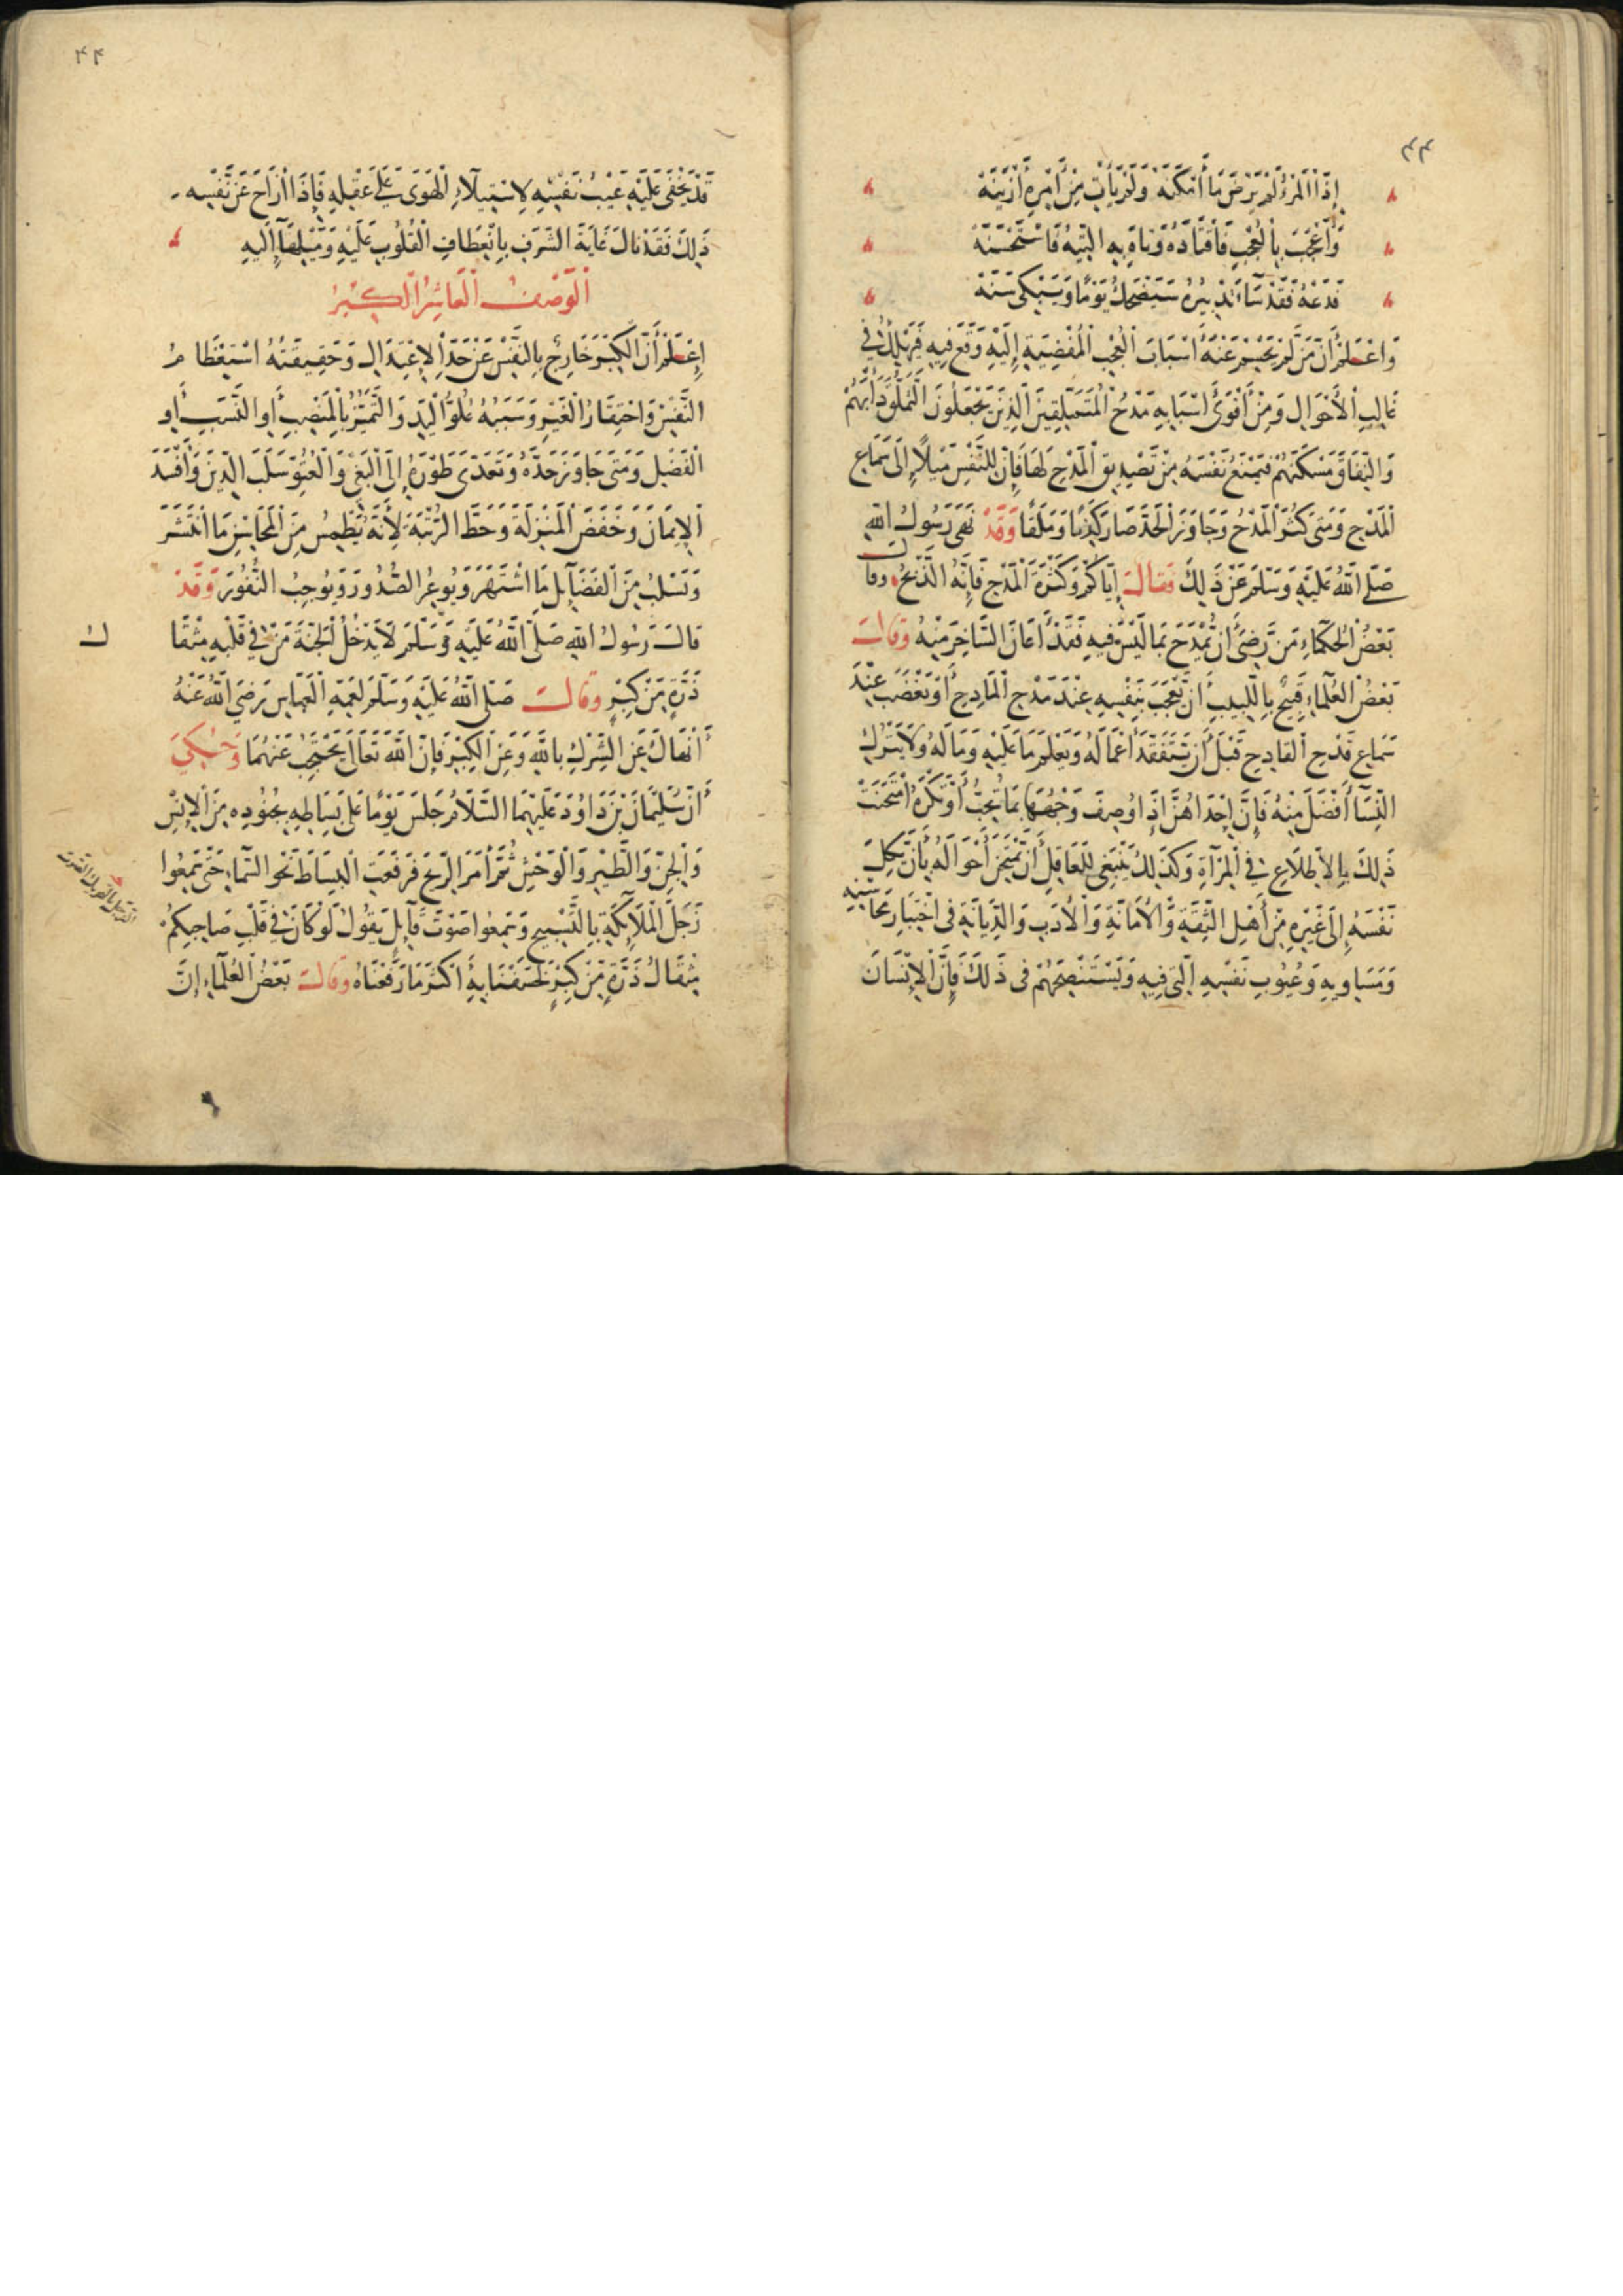 ٤٣
إِذَا الْمَرْءُ لَمْ يَرْضَ مَا أَمْكَنَهْ وَلَمْ يَأْتِ مِنْ أَمْرِهِ أَزْيَنَهْ
وَأُعْجِبَ بِالْعُجْبِ فَاقْتَادَهُ وَتَاهَ بِهِ التِّيهُ فَاسْتَحْسَنَهْ
فَدَعْهُ فَقَدْ سَاءَ تَدْبِيرُهُ سَيَضْحَكُ يَوْمًا وَيَبْكِي سَنَهْ
وَاعْلَمْ أَنَّ مَنْ لَمْ يَحْسِمْ عَنْهُ أَسْبَابَ الْعُجْبِ الْمُفْضِيَةِ إِلَيْهِ وَقَعَ فِيهِ فَيَهْلِكُ فِي
غَالِبِ الْأَحْوَالِ وَمِنْ أَقْوَى أَسْبَابِهِ مَدْحُ الْمُتَمَلِّقِينَ الَّذِينَ يَجْعَلُونَ التَّمَلُّقَ دَأْبَهُمْ
وَالنِّفَاقَ مَسْكَنَهُمْ فَيَمْنَعُ نَفْسَهُ مِنْ تَصْدِيقِ الْمَدْحِ لَهَا فَإِنَّ لِلنَّفْسِ مَيْلًا إِلَى سَمَاعِ
الْمَدْحِ وَمَتَى كَثُرَ الْمَدْحُ وَجَاوَزَ الْحَدَّ صَارَ كَذِبًا وَمَلَقًا وَقَدْ نَهَى رَسُولُ اللهِ
صَلَّى اللهُ عَلَيْهِ وَسَلَّمَ عَنْ ذَلِكَ فَقَالَ إِيَّاكُمْ وَكَثْرَةَ الْمَدْحِ فَإِنَّهُ الذَّبْحُ وقال
بَعْضُ الْحُكَمَاءِ مَنْ رَضِيَ أَنْ يُمْدَحَ بِمَا لَيْسَ فِيهِ فَقَدْ أَعَانَ السَّاخِرَ مِنْهُ وَقَالَ
بَعْضُ الْعُلَمَاءِ قَبِيحٌ بِاللَّبِيبِ أَنْ يَعْجَبَ بِنَفْسِهِ عِنْدَ مَدْحِ الْمَادِحِ أَوْ يَغْضَبَ عِنْدَ
سَمَاعِ قَدْحِ الْقَادِحِ قَبْلَ أَنْ يَتَفَقَّدَ أَعْمَالَهُ وَيَعْلَمَ مَا عَلَيْهِ وَمَا لَهُ وَلَا يَتْرُكْ
النِّسَاءَ أَفْضَلَ مِنْهُ فَإِنَّ إِحْدَاهُنَّ إِذَا وُصِفَ وَجْهُهَا بِمَا تُحِبُّ أَوْ تَكْرَهُ امْتَحَنَتْ
ذَلِكَ بِالِاطِّلَاعِ فِي الْمِرْآةِ وَكَذَلِكَ يَنْبَغِي لِلْعَاقِلِ أَنْ يَمْتَحِنَ أَحْوَالَهُ بِأَنْ يَكِلَ
نَفْسَهُ إِلَى غَيْرِهِ مِنْ أَهْلِ الثِّقَةِ وَالْأَمَانَةِ وَالْأَدَبِ وَالدِّيَانَةِ فِي اخْتِبَارِ مَحَاسِنِهِ
وَمَسَاوِيهِ وَعُيُوبِ نَفْسِهِ الَّتِي فِيهِ وَيَسْتَنْصِحُهُمْ فِي ذَلِكَ فَإِنَّ الْإِنْسَانَ
٤٤
قَدْ يَخْفَى عَلَيْهِ عَيْبُ نَفْسِهِ لِاسْتِيلَاءِ الْهَوَى عَلَى عَقْلِهِ فَإِذَا أَزَاحَ عَنْ نَفْسِهِ
ذَلِكَ فَقَدْ نَالَ غَايَةَ الشَّرَفِ بِانْعِطَافِ الْقُلُوبِ عَلَيْهِ وَمَيْلِهَا إِلَيْهِ
الْوَصْفُ الْعَاشِرُ الْكِبْرُ
إِعْلَمْ أَنَّ الْكِبْرَ خَارِجٌ بِالنَّفْسِ عَنْ حَدِّ الِاعْتِدَالِ وَحَقِيقَتُهُ اسْتِعْظَامُ
النَّفْسِ وَاحْتِقَارُ الْغَيْرِ وَسَبَبُهُ عُلُوُّ الْيَدِ وَالتَّمَيُّزُ بِالْمَنْصِبِ أَوِ النَّسَبِ أَوِ
الْفَضْلِ وَمَتَى جَاوَزَ حَدَّهُ وَتَعَدَّى طَوْرَهُ إِلَى الْبَغْيِ وَالْعُتُوِّ سَلَبَ الدِّينَ وَأَفْسَدَ
الْإِيمَانَ وَخَفَضَ الْمَنْزِلَةَ وَحَطَّ الرُّتْبَةَ لِأَنَّهُ يَطْمِسُ مِنَ الْمَحَاسِنِ مَا انْتَشَرَ
وَيَسْلُبُ مِنَ الْفَضَائِلِ مَا اشْتَهَرَ وَيُوغِرُ الصُّدُورَ وَيُوجِبُ النُّفُورَ وَقَدْ
قَالَ رَسُولُ اللهِ صَلَّى اللهُ عَلَيْهِ وَسَلَّمَ لَا يَدْخُلُ الْجَنَّةَ مَنْ فِي قَلْبِهِ مِثْقَا
ل
ذَرَّةٍ مِنْ كِبْرٍ وَقَالَ صَلَّى اللهُ عَلَيْهِ وَسَلَّمَ لِعَمِّهِ الْعَبَّاسِ رَضِيَ اللهُ عَنْهُ
أَنْهَاكَ عَنِ الشِّرْكِ بِاللهِ وَعَنِ الْكِبْرِ فَإِنَّ اللهَ تَعَالَى يَحْتَجِبُ عَنْهُمَا وَحُكِيَ
أَنَّ سُلَيْمَانَ بْنَ دَاوُدَ عَلَيْهِمَا السَّلَامُ جَلَسَ يَوْمًا عَلَى بِسَاطِهِ بِجُنُودِهِ مِنَ الْإِنْسِ
وَالْجِنِّ وَالطَّيْرِ وَالْوَحْشِ ثُمَّ أَمَرَ الرِّيحَ فَرَفَعَتِ الْبِسَاطَ نَحْوَ السَّمَاءِ حَتَّى سَمِعُوا
زَجَلَ الْمَلَائِكَةِ بِالتَّسْبِيحِ وَسَمِعُوا صَوْتَ قَائِلٍ يَقُولُ لَوْ كَانَ فِي قَلْبِ صَاحِبِكُمْ
مِثْقَالُ ذَرَّةٍ مِنْ كِبْرٍ لَخَسَفْنَا بِهِ أَكْثَرَ مَا رَفَعْنَاهُ وَقَالَ بَعْضُ الْعُلَمَاءِ إِنَّ